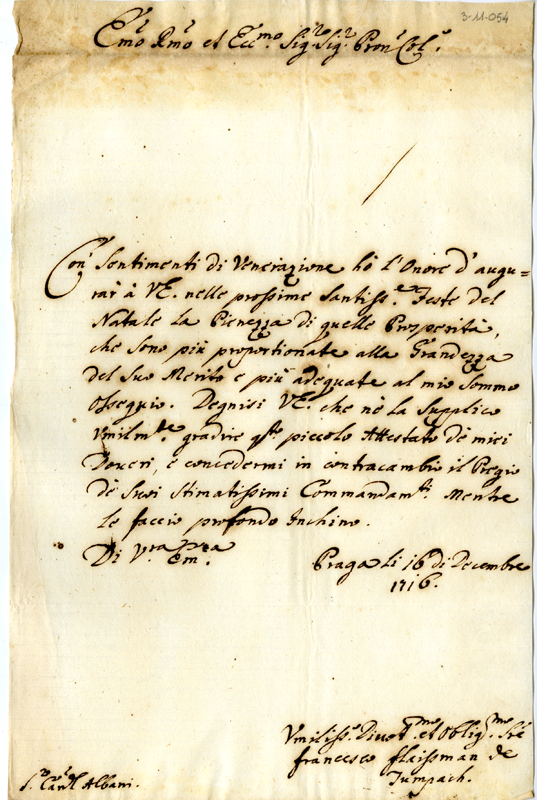 3-11-054
Emo͞ Rmo͞ et Ecc.mo Sig.re Sig.r Pron͞ Col.
Con Sentimenti di Venerazione hò l'Onore d'augu=
rar à VE. nelle prossime Santiss.e Feste del
Natale La Pienezza di quelle Prosperità,
che sono più proportionate alla Grandezza
del Suo Merito e più adequate al mio Sommo
Ossequio. Degnisi VE. che nè La Supplico
Vmilm.te gradire q.sto piccolo Attestato de miei
Doveri, e concedermi in contracambio il Pregio
de Suoi Stimatissimi Commandam.ti Mentre
le faccio profondo Inchino.
Di V.ra Em.za
Praga li 16 di Decembre
1716.
Vmiliss.o Divot.mo et Oblig.mo
francesco flaissman de
Tumpach.
Card.l Albani.